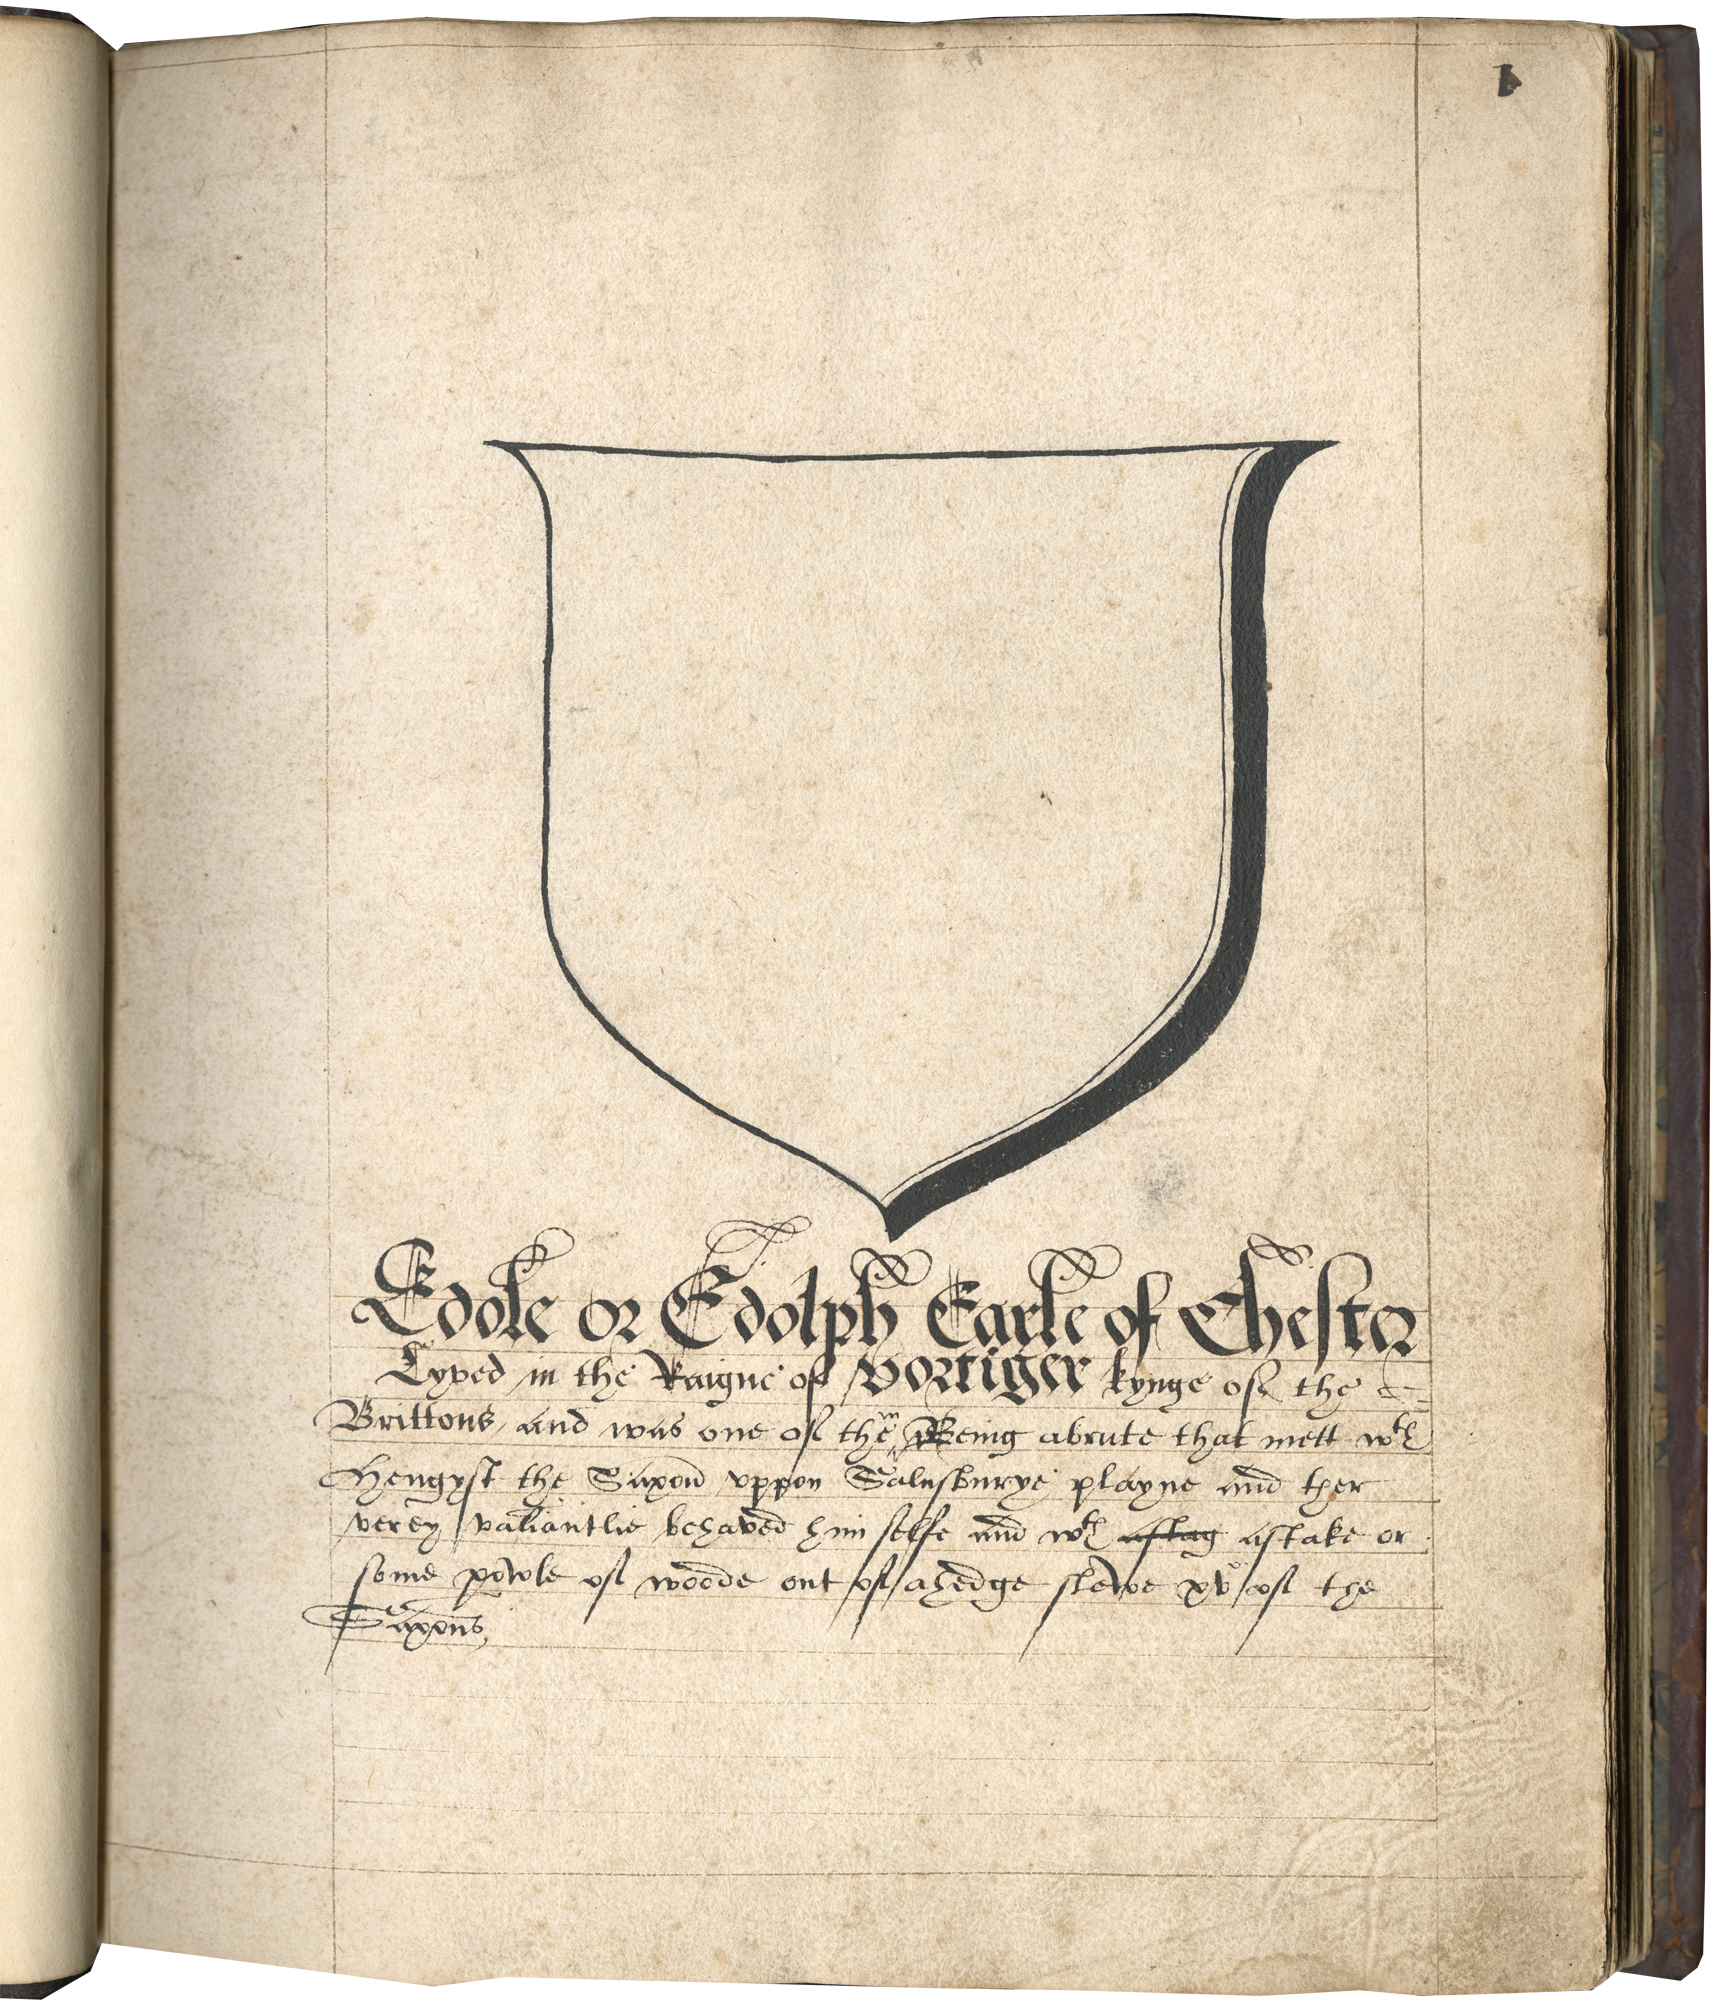 1
Edole or Edolph Earle of Chester
Lyved in the Raigne of Vortiger kynge of the
Brittons, and was one of them Being abrute that mett wth
Hengyst the Saxon vppon Salusburye playne and ther
verey valiantlie behaved him selfe and wth astag astake or
some powle of woode out of ahedge slewe xv of the
Saxons,